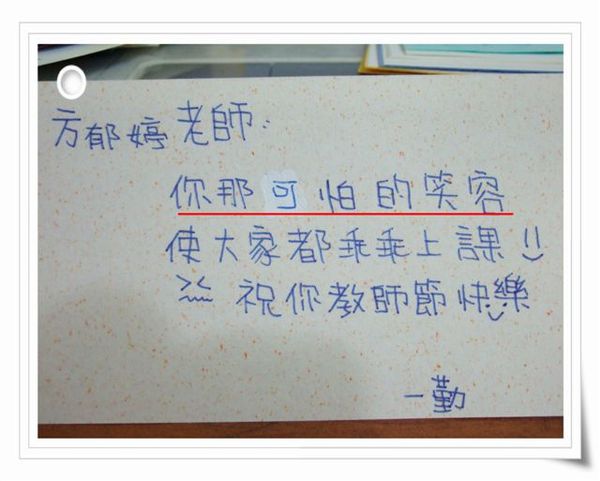 方郁婷老師：
你那可怕的笑容
使大家都乖乖上課!!
祝你教師節快樂
一勤